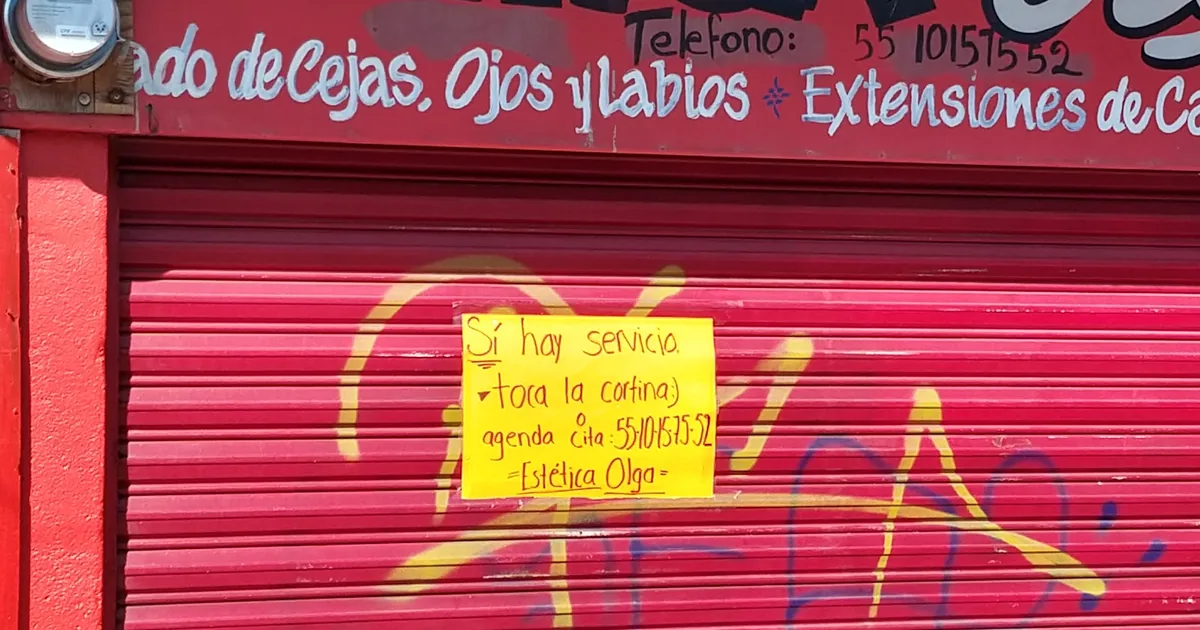 Telefono: 55 10157552
ado de Cejas, Ojos y Labios Extensiones de
Sí hay servicio.
toca la cortina:)
o
agenda cita: 55-10-15-75-52
=Estética Olga=